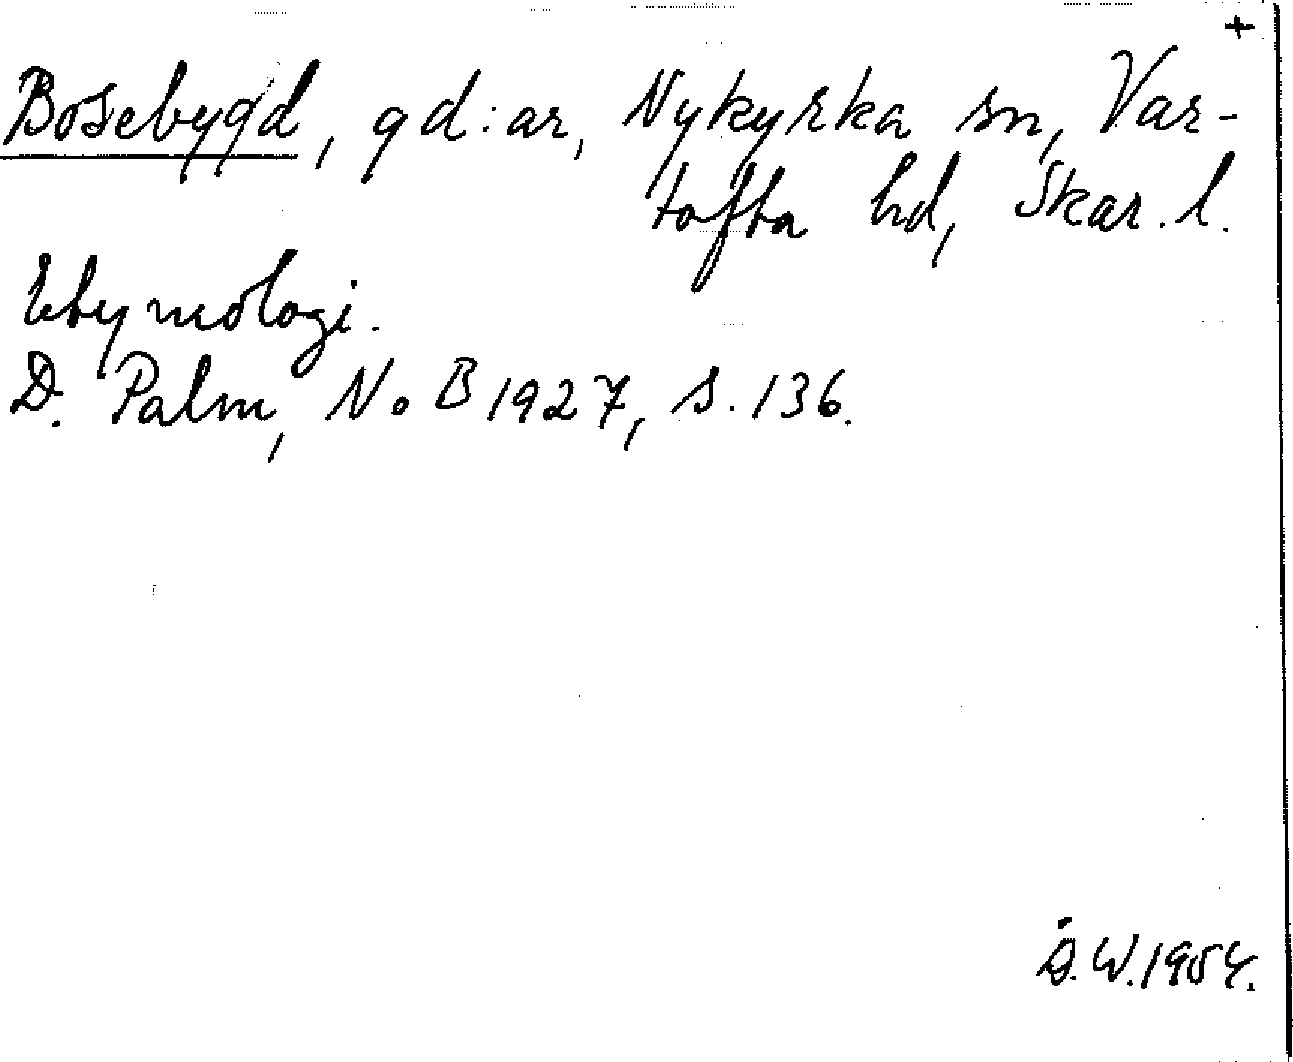 +
Bosebygd, gd:ar, Nykyrka sn, Var-
tofta hd, Skar. l.
Etymologi.
D. Palm, NoB 1927, s. 136.
D.W. 1954.